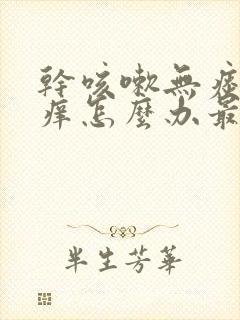 幹咳嗽無痰
痒怎麼办最
半生芳華